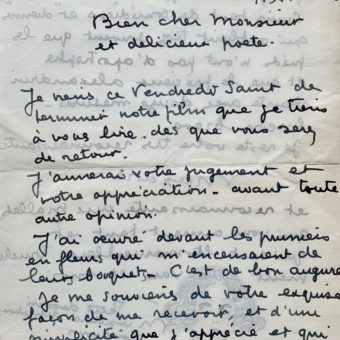 Bien cher Monsieur
et delicieux poete.
Je viens ce Vendredi Saint de
terminer notre film que je tiens
à vous lire. des que vous serez
de retour.
J'aimerai votre jugement et
votre appréciation. avant toute
autre opinion.
J'ai œuvré devant les pruniers
en fleurs qui m'encensaient de
leurs bouquets. C'est de bon augure
Je me souviens de votre exquise
façon de me recevoir, et d'une
simplicité que j'apprécie et qui